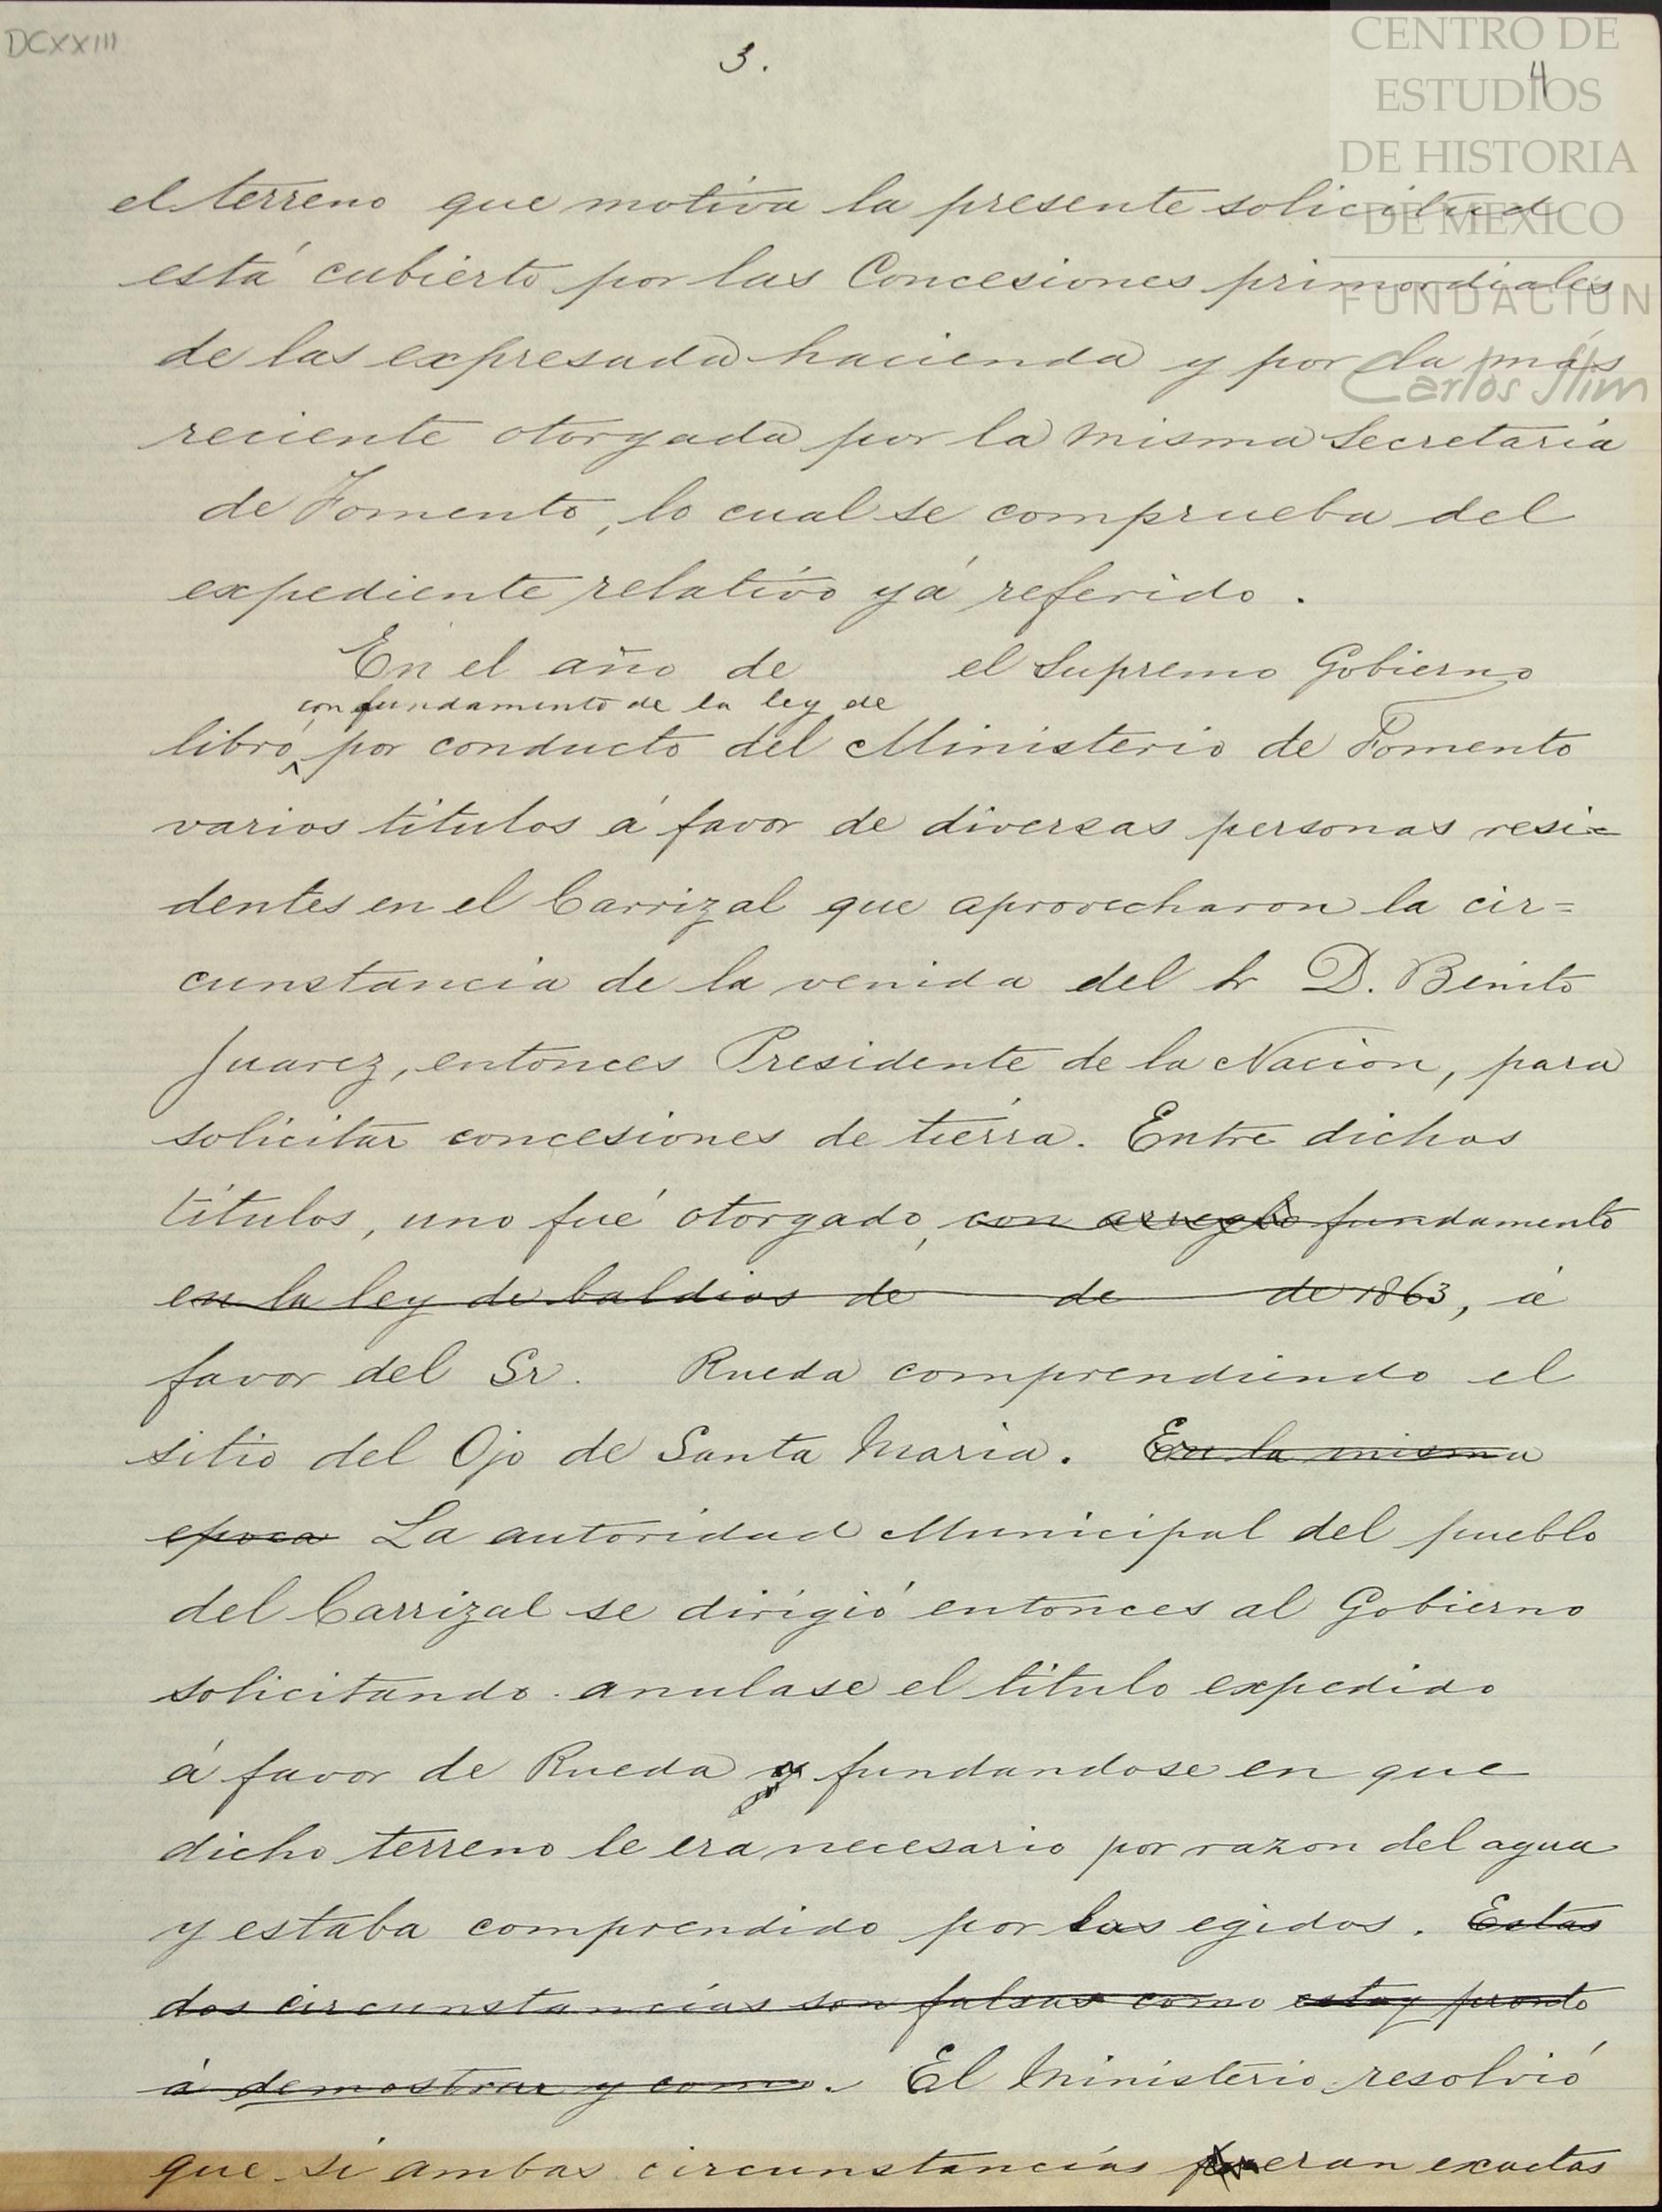 DCXXIII
3.
4
CENTRO DE
ESTUDIOS
DE HISTORIA
DE MEXICO
FUNDACIÓN
Carlos Slim
el terreno que motiva la presente solicitud
está cubierto por las Concesiones primordiales
de las expresada hacienda y por la más
reciente otorgada por la misma Secretaría
de Fomento, lo cual se comprueba del
expediente relativo yá referido.
En el año de el Supremo Gobierno
con fundamento de la ley de
libró, por conducto del Ministerio de Fomento
varios títulos á favor de diversas personas resi=
dentes en el Carrizal que aprovecharon la cir=
cunstancia de la venida del Sr D. Benito
Juarez, entonces Presidente de la Nacion, para
solicitar concesiones de tierra. Entre dichos
títulos, uno fué otorgado, con arreglo fundamento
en la ley de baldios de de de 1863, á
favor del Sr. Rueda comprendiendo el
sitio del Ojo de Santa Maria. En la misma
epoca La autoridad Municipal del pueblo
del Carrizal se dirigió entonces al Gobierno
solicitando anulase el título expedido
á favor de Rueda y fundandose en que
dicho terreno le era necesario por razon del agua
y estaba comprendido por los egidos. Estas
dos circunstancias son falsas como estoy pronto
á demostrar y como. El Ministerio resolvió
que si ambas circunstancias eran exactas